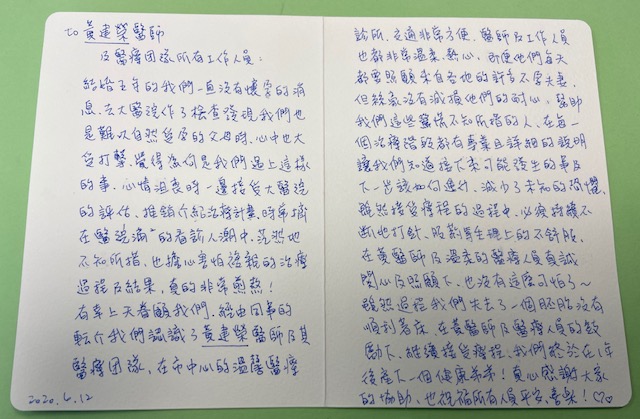 to 黃建榮醫師
及醫療團隊所有工作人員：
結婚五年的我們一直沒有懷孕的消
息，去大醫院作了檢查發現我們也
是難以自然受孕的父母時，心中也大
受打擊，覺得為何是我們遇上這樣
的事，心情沮喪時一邊接受大醫院
的評估、推銷介紹治療計畫，時常擠
在醫院滿滿的看診人潮中，茫然地
不知所措，也擔心害怕複雜的治療
過程及結果，真的非常煎熬！
有幸上天眷顧我們，經由同事的
轉介我們認識了黃建榮醫師及其
醫療團隊，在市中心的溫馨醫療
2020.6.12
診所，交通非常方便，醫師及工作人員
也都非常溫柔、熱心，即便他們每天
都要照顧來自各地的許多不孕夫妻，
但絲毫沒有減損他們的耐心，幫助
我們這些驚慌不知所措的人，在每一
個治療階段都有專業且詳細的說明
讓我們知道接下來可能發生的事及
下一步該如何進行，減少了未知的恐懼，
雖然接受療程的過程中，必須持續不
斷地打針、服藥等生理上的不舒服，
在黃醫師及溫柔的醫療人員真誠
關心及照顧下，也沒有這麼可怕了～
雖然過程我們失去了一個胚胎沒有
順利著床，在黃醫師及醫療人員的鼓
勵下，繼續接受療程，我們終於在1年
後產下一個健康弟弟！真心感謝大家
的協助，也祝福所有人員平安、喜樂！♡♡